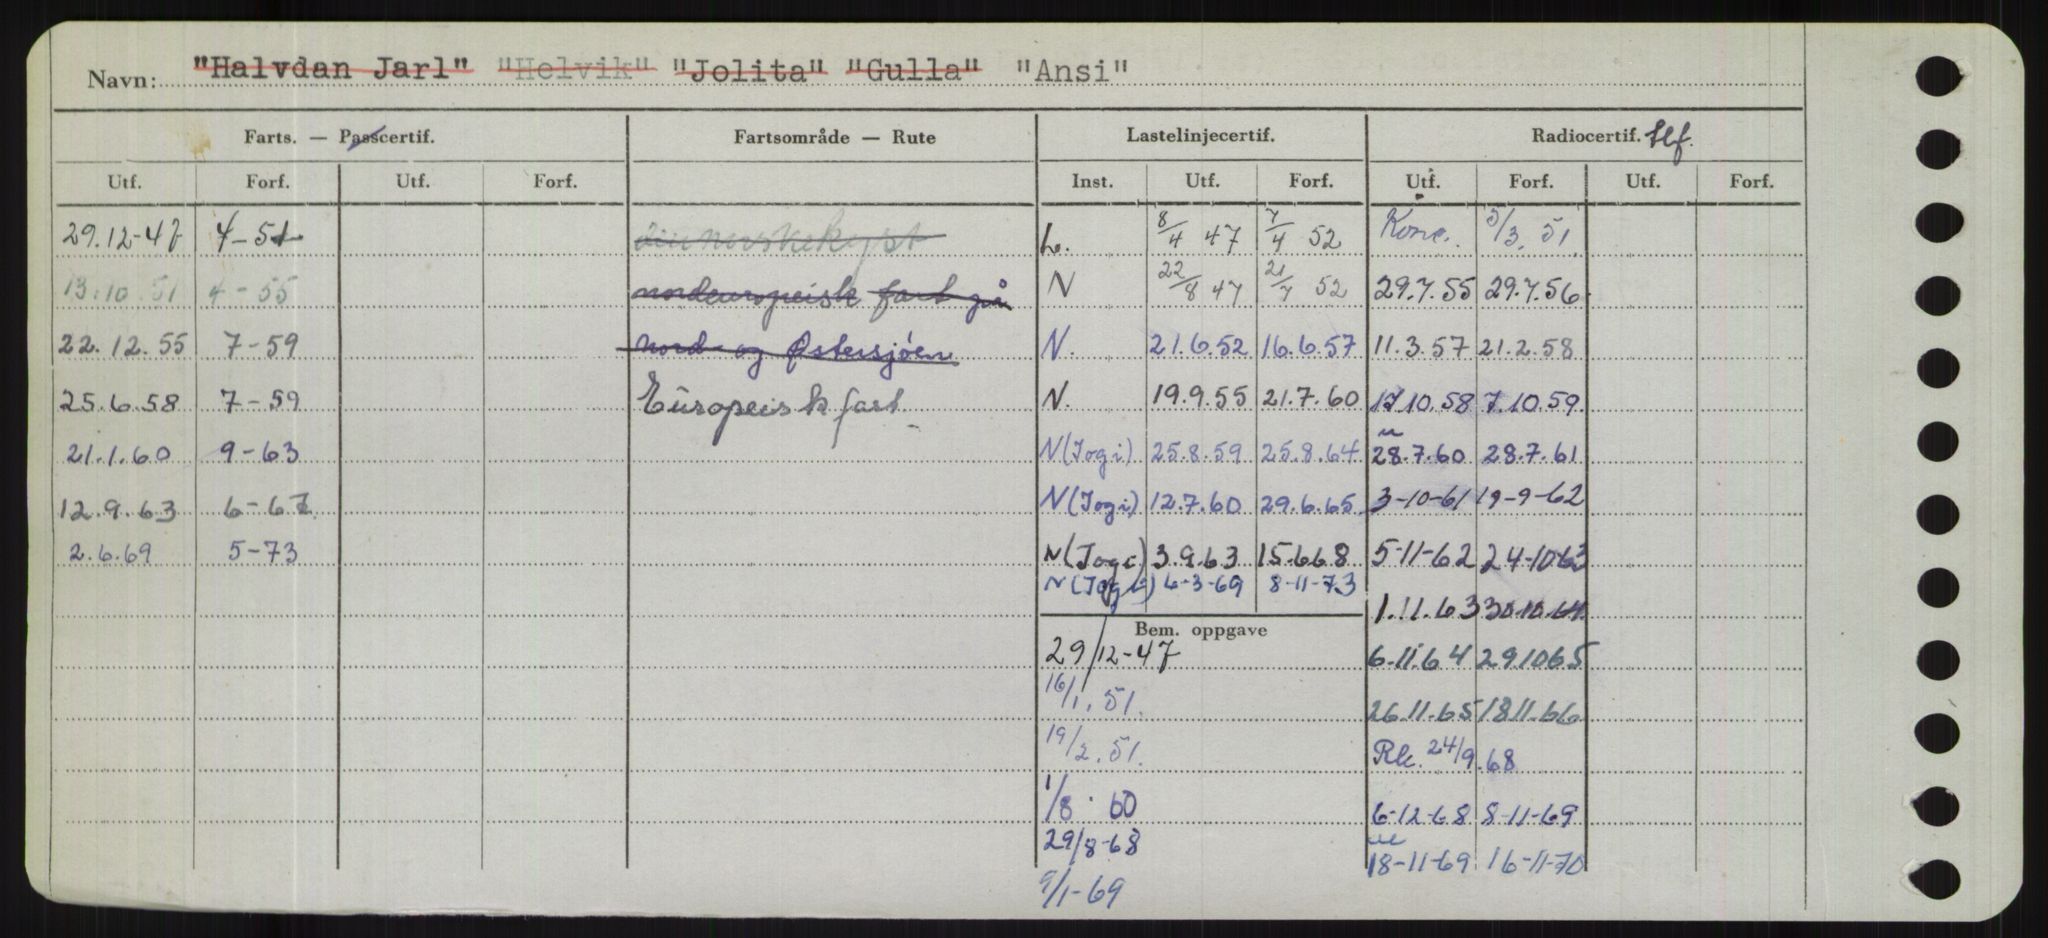 Navn: "Halvdan Jarl" "Helvik" "Jolita" "Gulla" "Ansi"
Farts. — Passcertif. Fartsområde — Rute Lastelinjecertif. Radiocertif. tlf.
Utf. Forf. Utf. Forf. Inst. Utf. Forf. Utf. Forf. Utf. Forf.
29.12-47 4-51 den norske kyst L. 8/4 47 7/4 52 Konc. 5/3. 51
13.10.51 4-55 nordeuropeisk fart på N 22/8 47 21/7 52 29.7.55 29.7.56
22.12.55 7-59 Nord- og Østersjøen N. 21.6.52 16.6.57 11.3.57 21.2.58
25.6.58 7-59 Europeisk fart N. 19.9.55 21.7.60 17.10.58 7.10.59
21.1.60 9-63 N(Jogi) 25.8.59 25.8.64 28.7.60 28.7.61
12.9.63 6-67 N(Jogi) 12.7.60 29.6.65 3-10-61 19-9-62
2.6.69 5-73 N(Jogi) 3.9.63 15.6.68 5-11-62 24-10-63
N(Jogi) 6-3-69 8-11-73
1.11.63 30.10.64
Bem. oppgave
29/12-47 6.11.64 29.10.65
16/1. 51. 26.11.65 18.11.66
19/2. 51. Rk. 24/9.68
1/8. 60 6-12-68 8-11-69
29/8-68 18-11-69 16-11-70
9/1-69